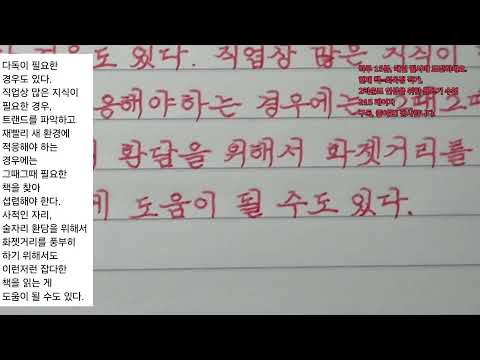 다독이 필요한
경우도 있다.
직업상 많은 지식이
필요한 경우,
트랜드를 파악하고
재빨리 새 환경에
적응해야 하는
경우에는
그때그때 필요한
책을 찾아
섭렵해야 한다.
사적인 자리,
술자리 환담을 위해서
화젯거리를 풍부히
하기 위해서도
이런저런 잡다한
책을 읽는 게
도움이 될 수도 있다.
도 있다. 직업상 많은 지식이
응해야하는 경우에는
환담을 위해서 화젯거리를
도움이 될 수도 있다.